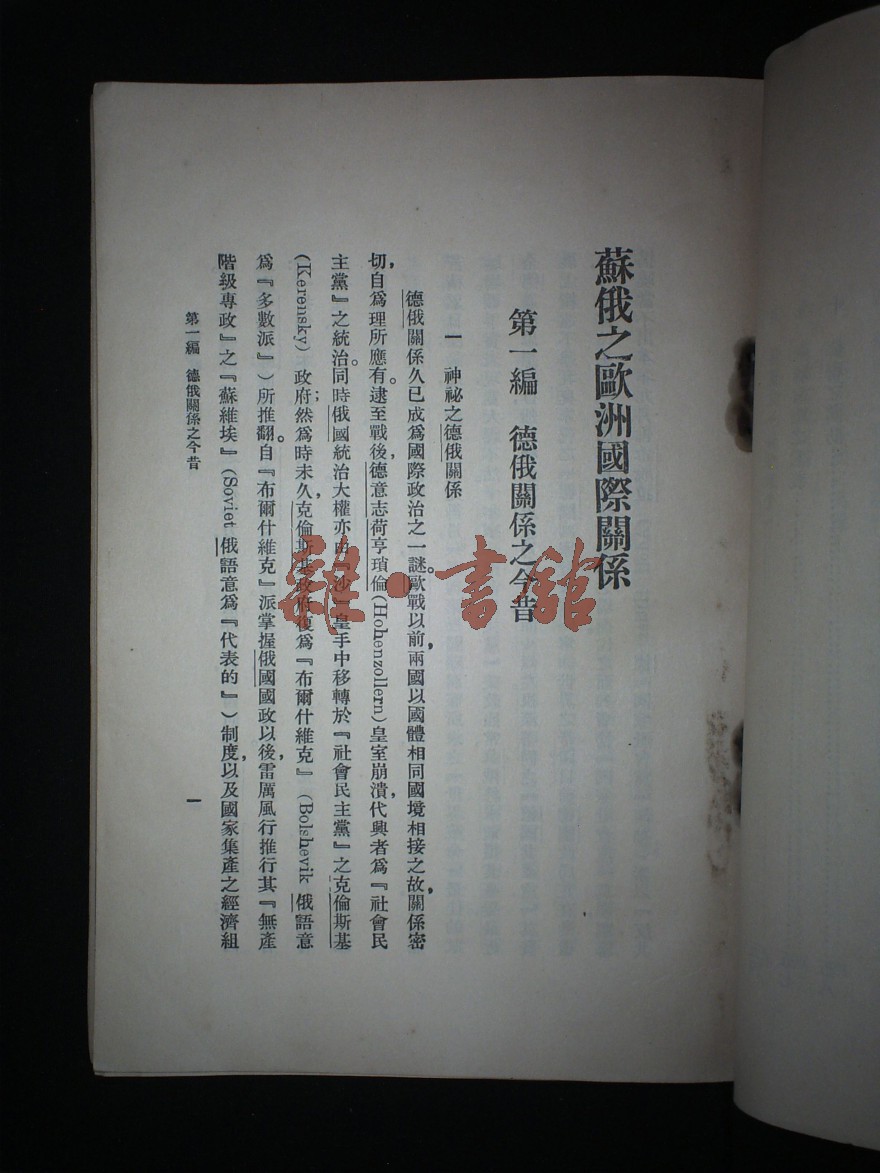 蘇俄之歐洲國際關係
第一編　德俄關係之今昔
一　神祕之德俄關係
德俄關係久已成爲國際政治之一謎。歐戰以前，兩國以國體相同國境相接之故，關係密
切，自爲理所應有。逮至戰後，德意志荷亨瑣倫(Hohenzollern)皇室崩潰，代興者爲『社會民
主黨』之統治。同時俄國統治大權亦由『沙』皇手中移轉於『社會民主黨』之克倫斯基
(Kerensky)政府；然爲時未久，克倫斯基政府復爲『布爾什維克』(Bolshevik 俄語意
爲『多數派』)所推翻。自『布爾什維克』派掌握俄國國政以後，雷厲風行推行其『無產
階級專政』之『蘇維埃』(Soviet 俄語意爲『代表的』)制度，以及國家集產之經濟組
第一編　德俄關係之今昔
一
雜·書館